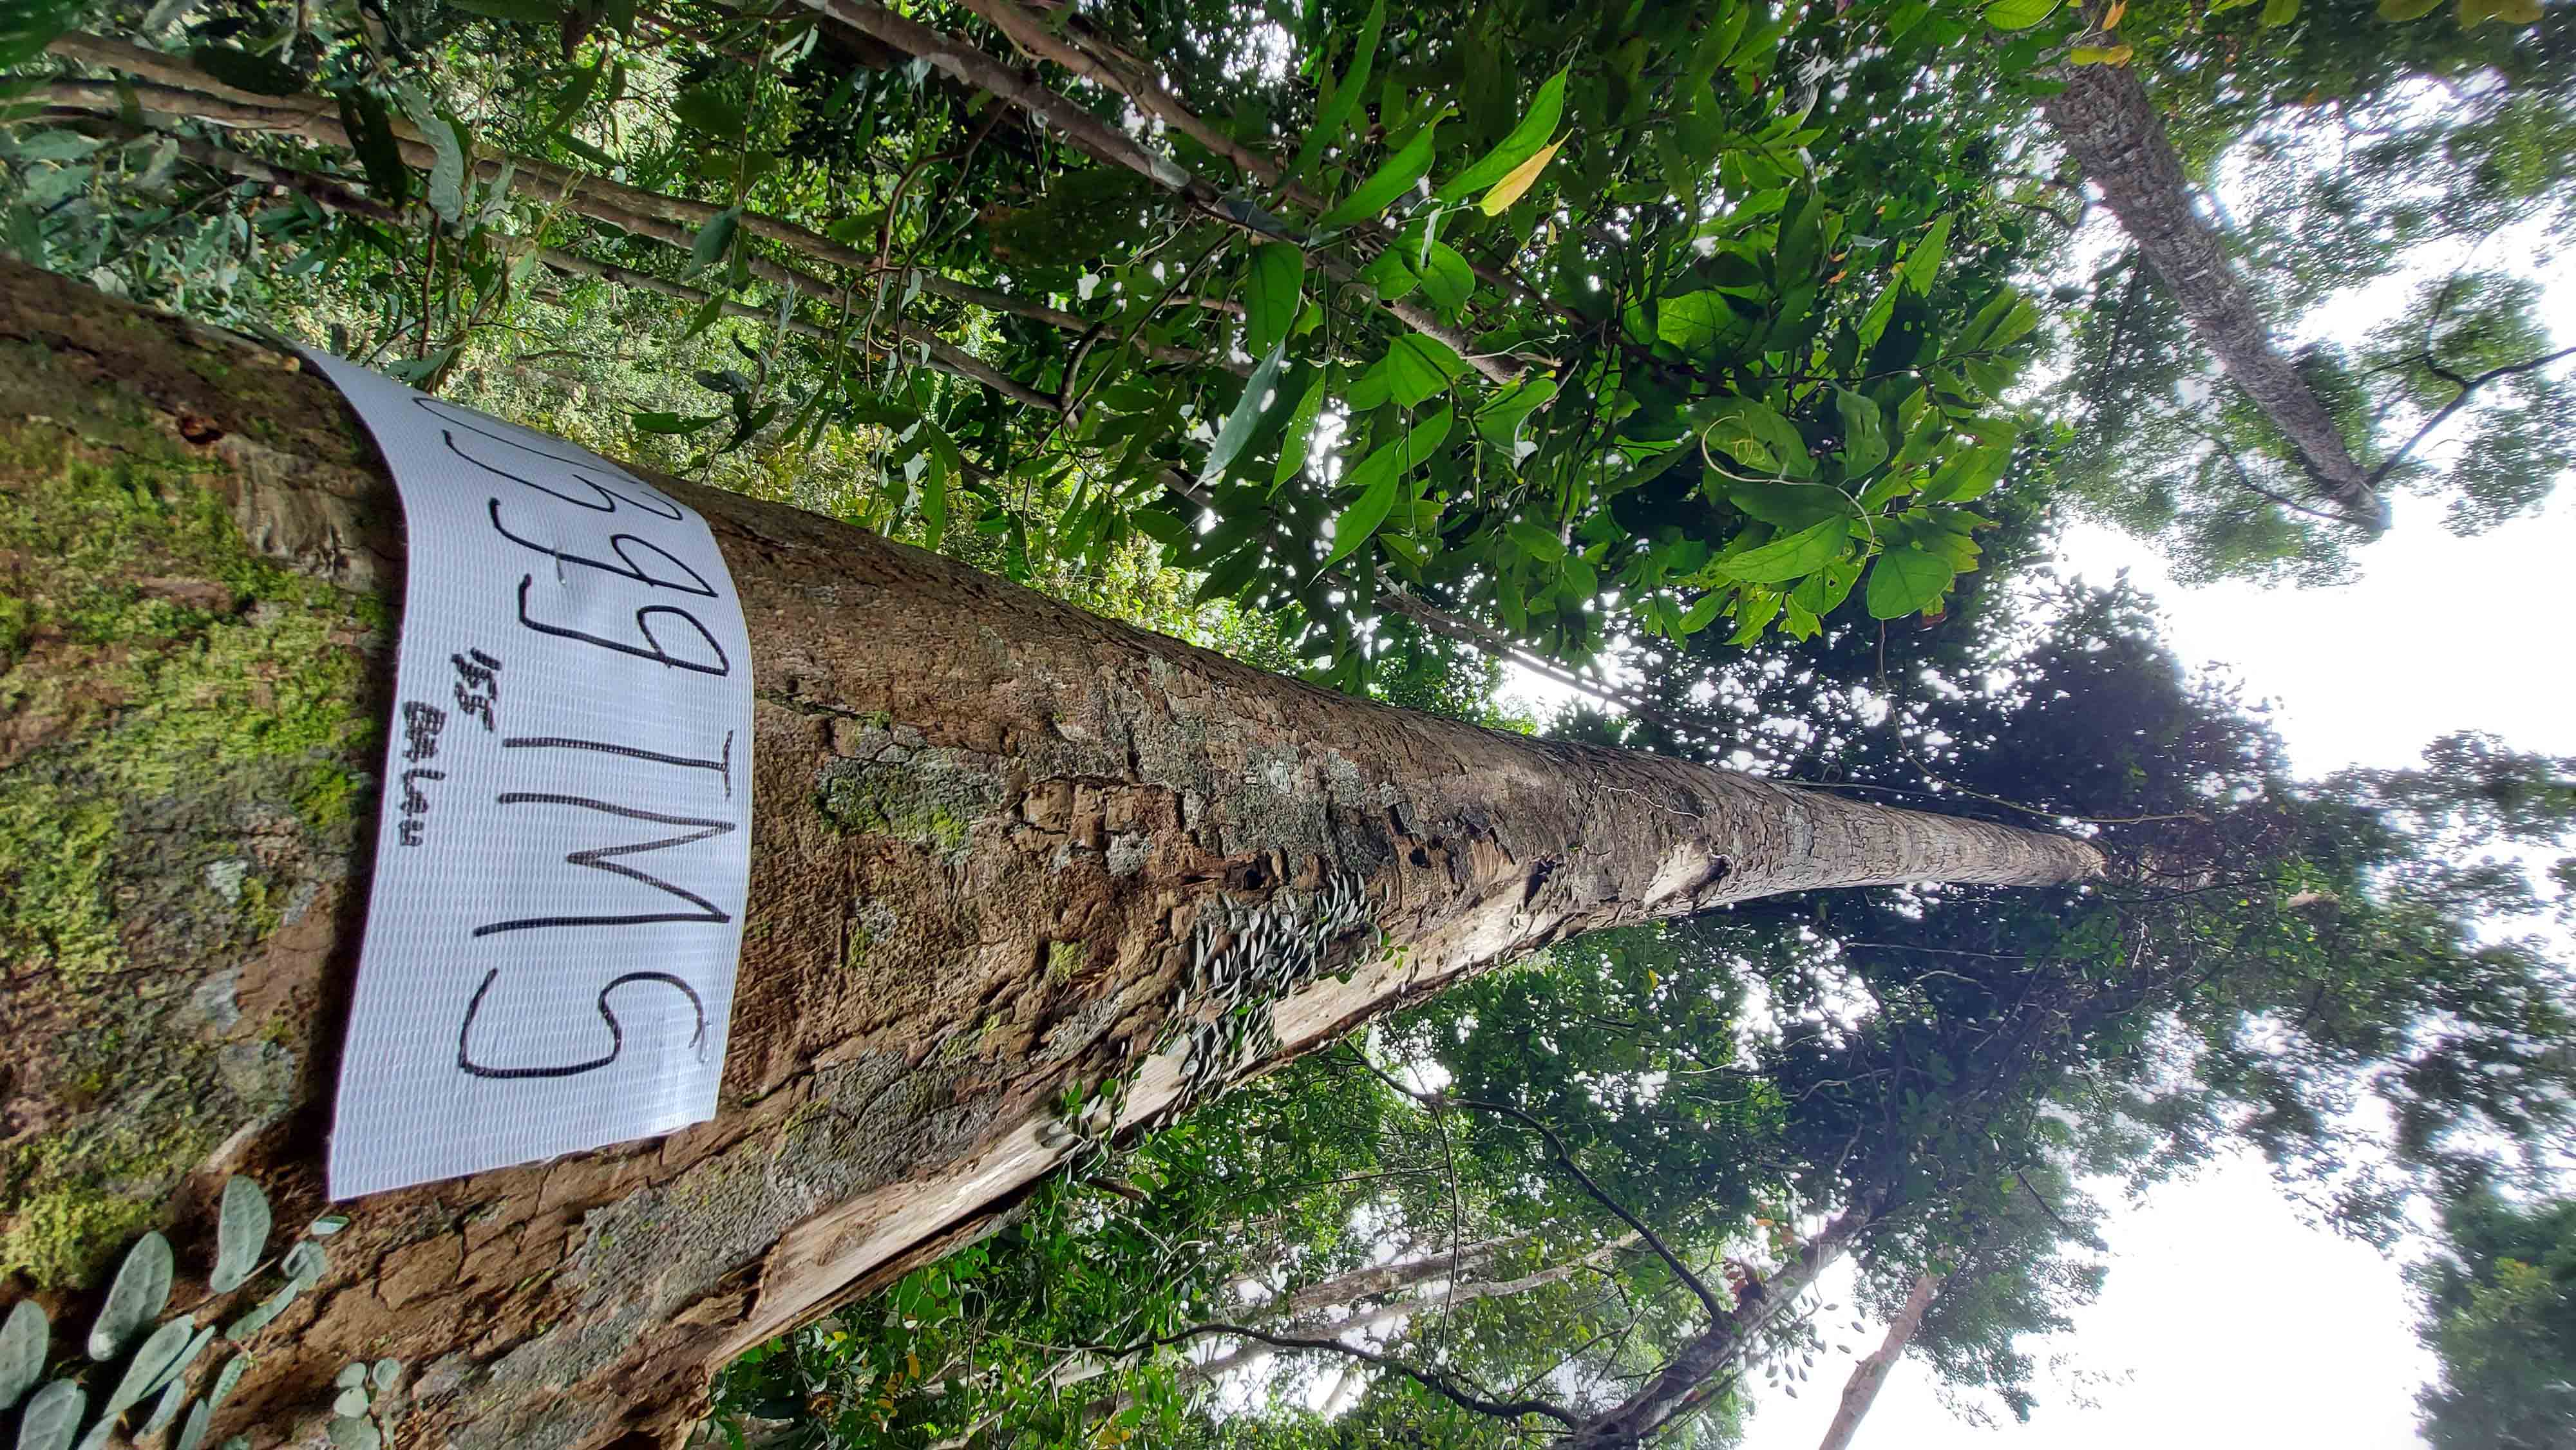 0399 TMS
155
BALau